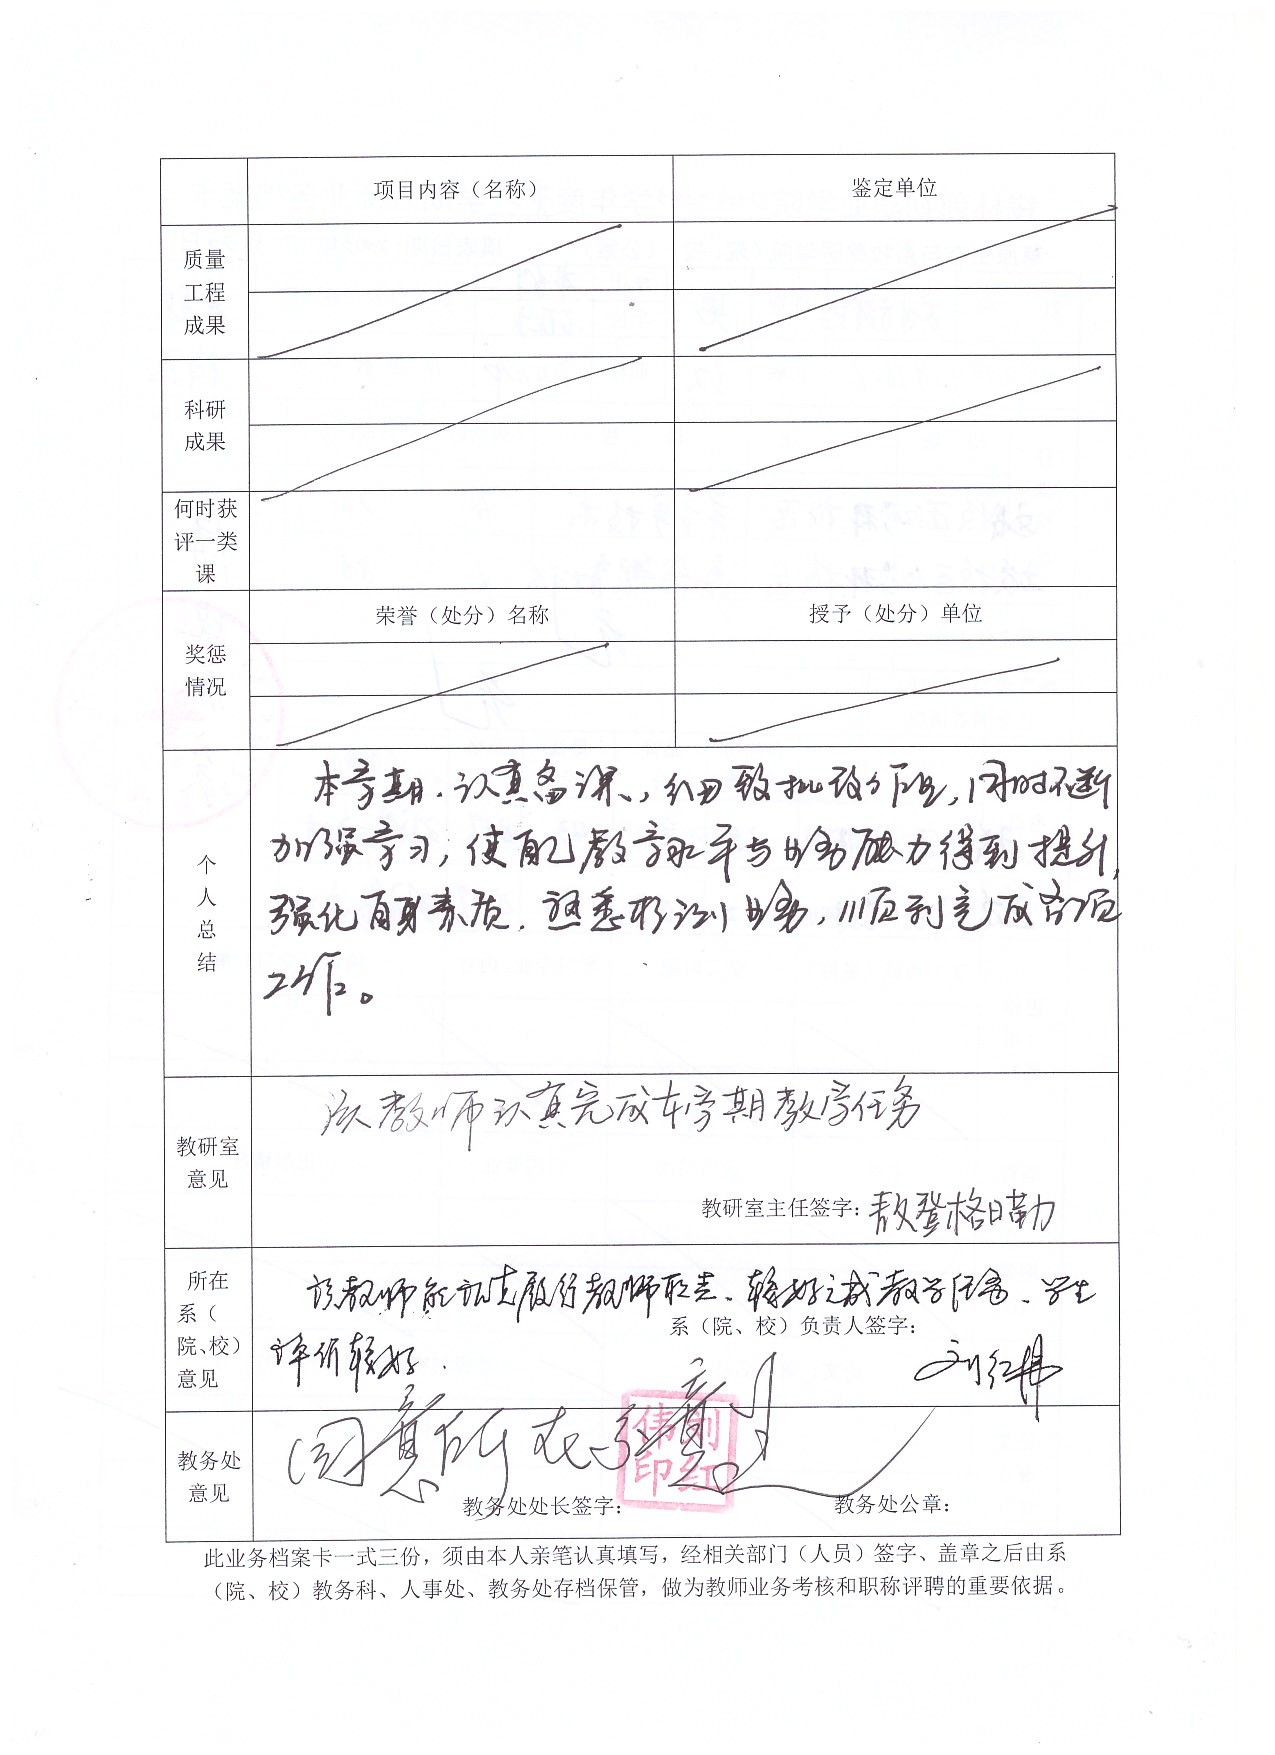 项目内容（名称） 鉴定单位
质量
工程
成果
科研
成果
何时获
评一类
课
奖惩
情况
荣誉（处分）名称 授予（处分）单位
个
人
总
结
本学期，认真备课，细致批改作业，同时不断
加强学习，使自己教学水平与业务能力得到提升，
强化自身素质，熟悉培训业务，顺利完成各项
工作。
教研室
意见
该教师认真完成本学期教学任务
教研室主任签字：敖登格日勒
所在
系（
院、校）
意见
该教师能认真履行教师职责、较好完成教学任务、学生
评价较好．
系（院、校）负责人签字：
刘红伟
教务处
意见
同意所在系意见
伟刘
印红
教务处处长签字： 教务处公章：
此业务档案卡一式三份，须由本人亲笔认真填写，经相关部门（人员）签字、盖章之后由系
（院、校）教务科、人事处、教务处存档保管，做为教师业务考核和职称评聘的重要依据。